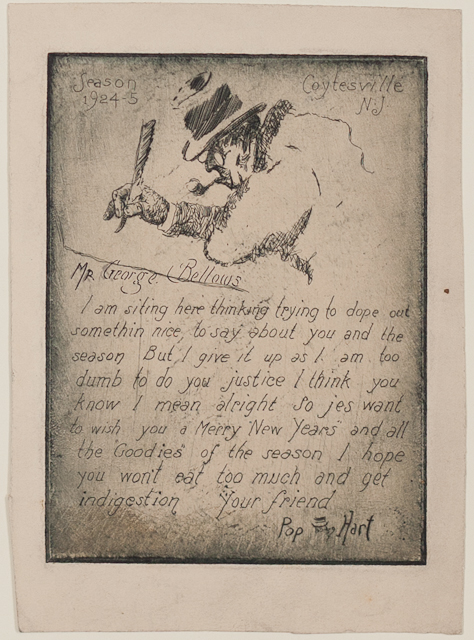 Season
1924-5
Coytesville
N.J
Mr George Bellows
I am siting here thinking trying to dope out
somethin nice, to say about you and the
season But I give it up as I am too
dumb to do you justice I think you
know I mean alright So jes want
to wish you a Merry "New Years" and all
the "Goodies" of the season I hope
you wont eat too much and get
indigestion Your friend
Pop Hart